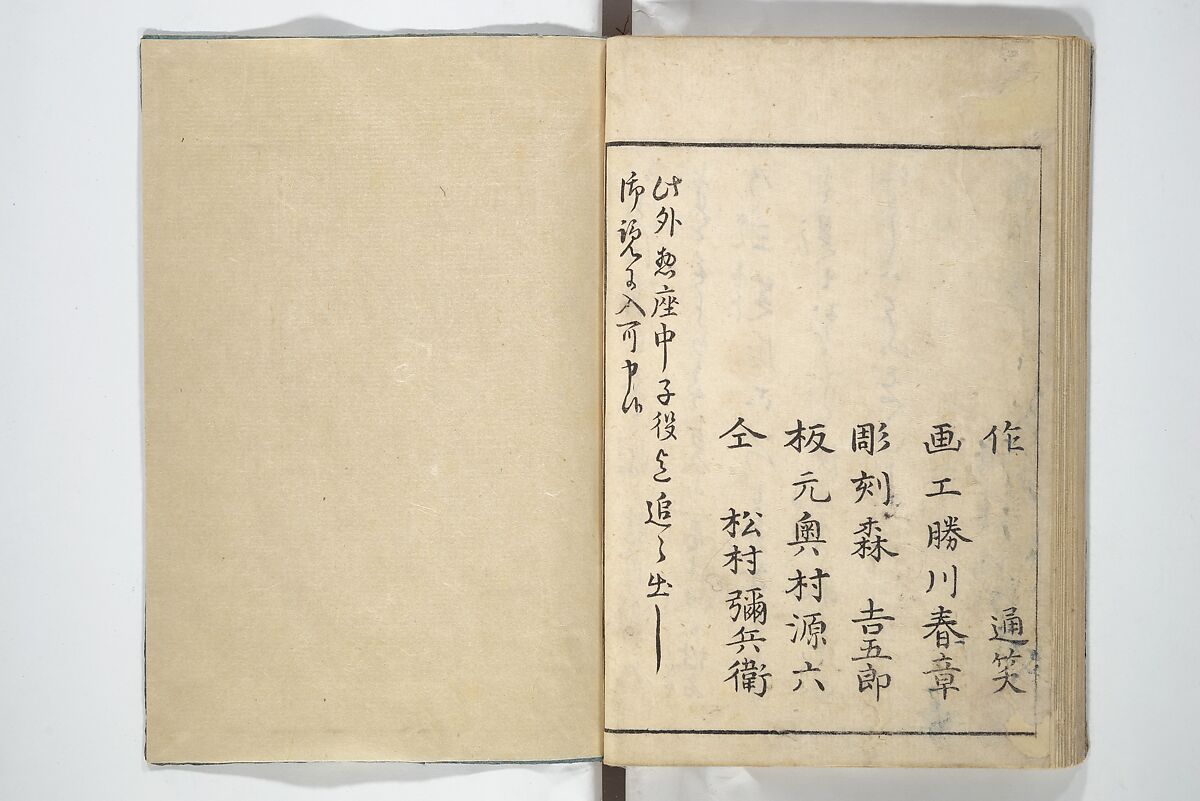 作 通笑
画工勝川春章
彫刻森 吉五郎
板元奥村源六
仝 松村彌兵衛
此外惣座中子役迄追々出し
御覧に入可申候